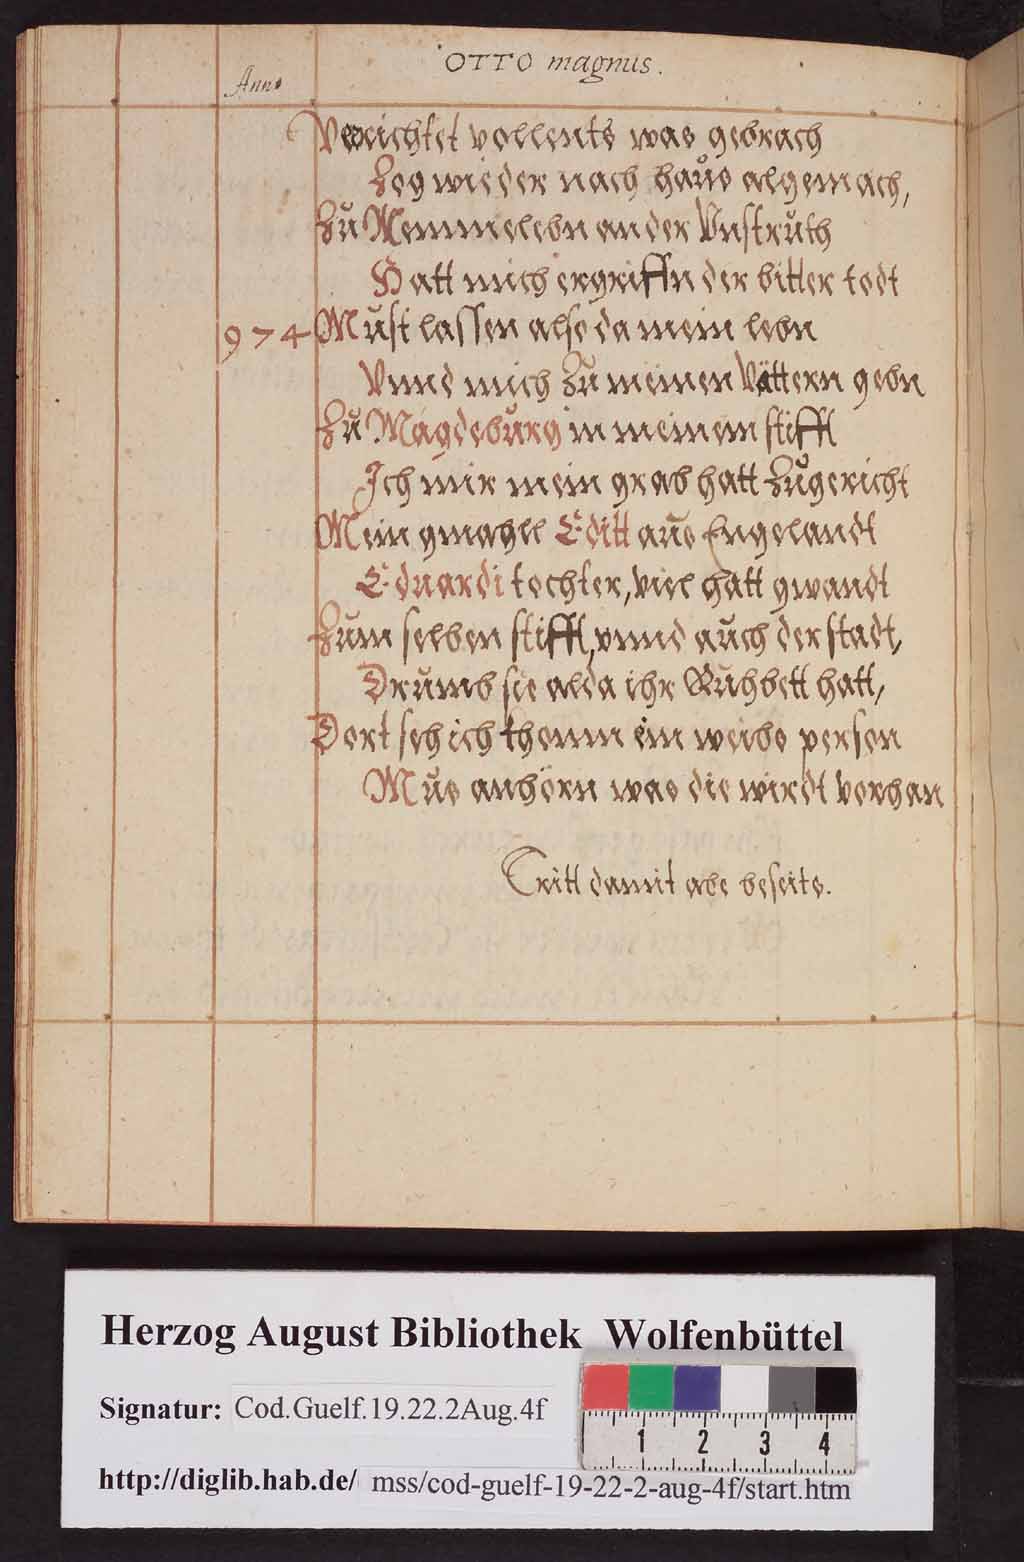 OTTO magnus.
Anno
Verrichtet vollents was gebrach
Zog wieder nach haus algemach,
Zu Memmelebn an der Vnstruth
Hatt mich ergriffn der bitter todt
974 Must lassen also da mein lebn
Vnnd mich zu meinen Vättern gebn
Zu Magdeburg in meinem stifft
Ich mir mein grab hatt zugericht
Mein gmahll Editt aus Engelandt
Eduardi tochter, viel hatt gwandt
Zum selben stifft, vnnd auch der stadt,
Drumb sie alda ihr Ruhbett hatt,
Dort seh ich thomn ein weibs person
Mus anhörn was die wirdt vorhan
Tritt damit abe beseits.
Herzog August Bibliothek Wolfenbüttel
Signatur: Cod.Guelf.19.22.2Aug.4f
1 2 3 4
http://diglib.hab.de/ mss/cod-guelf-19-22-2-aug-4f/start.htm